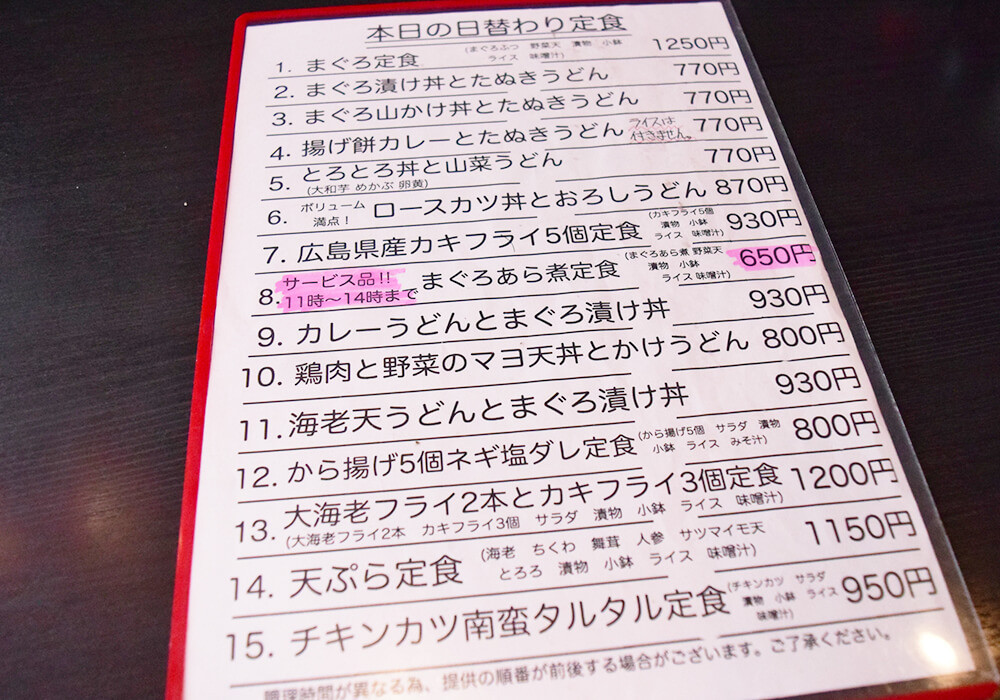 本日の日替わり定食
1. まぐろ定食 (まぐろぶつ 野菜天 漬物 小鉢 ライス 味噌汁) 1250円
2. まぐろ漬け丼とたぬきうどん 770円
3. まぐろ山かけ丼とたぬきうどん 770円
4. 揚げ餅カレーとたぬきうどん ライスは付きません。 770円
5. とろとろ丼と山菜うどん 770円
(大和芋 めかぶ 卵黄)
6. ボリューム満点! ロースカツ丼とおろしうどん 870円
7. 広島県産カキフライ5個定食 (カキフライ5個 漬物 小鉢 ライス 味噌汁) 930円
8. サービス品!! 11時〜14時まで まぐろあら煮定食 (まぐろあら煮 野菜天 漬物 小鉢 ライス 味噌汁) 650円
9. カレーうどんとまぐろ漬け丼 930円
10. 鶏肉と野菜のマヨ天丼とかけうどん 800円
11. 海老天うどんとまぐろ漬け丼 930円
12. から揚げ5個ネギ塩ダレ定食 (から揚げ5個 サラダ 漬物 小鉢 ライス みそ汁) 800円
13. 大海老フライ2本とカキフライ3個定食 1200円
(大海老フライ2本 カキフライ3個 サラダ 漬物 小鉢 ライス 味噌汁)
14. 天ぷら定食 (海老 ちくわ 舞茸 人参 サツマイモ天 とろろ 漬物 小鉢 ライス 味噌汁) 1150円
15. チキンカツ南蛮タルタル定食 (チキンカツ サラダ 漬物 小鉢 ライス 味噌汁) 950円
調理時間が異なる為、提供の順番が前後する場合がございます。ご了承ください。